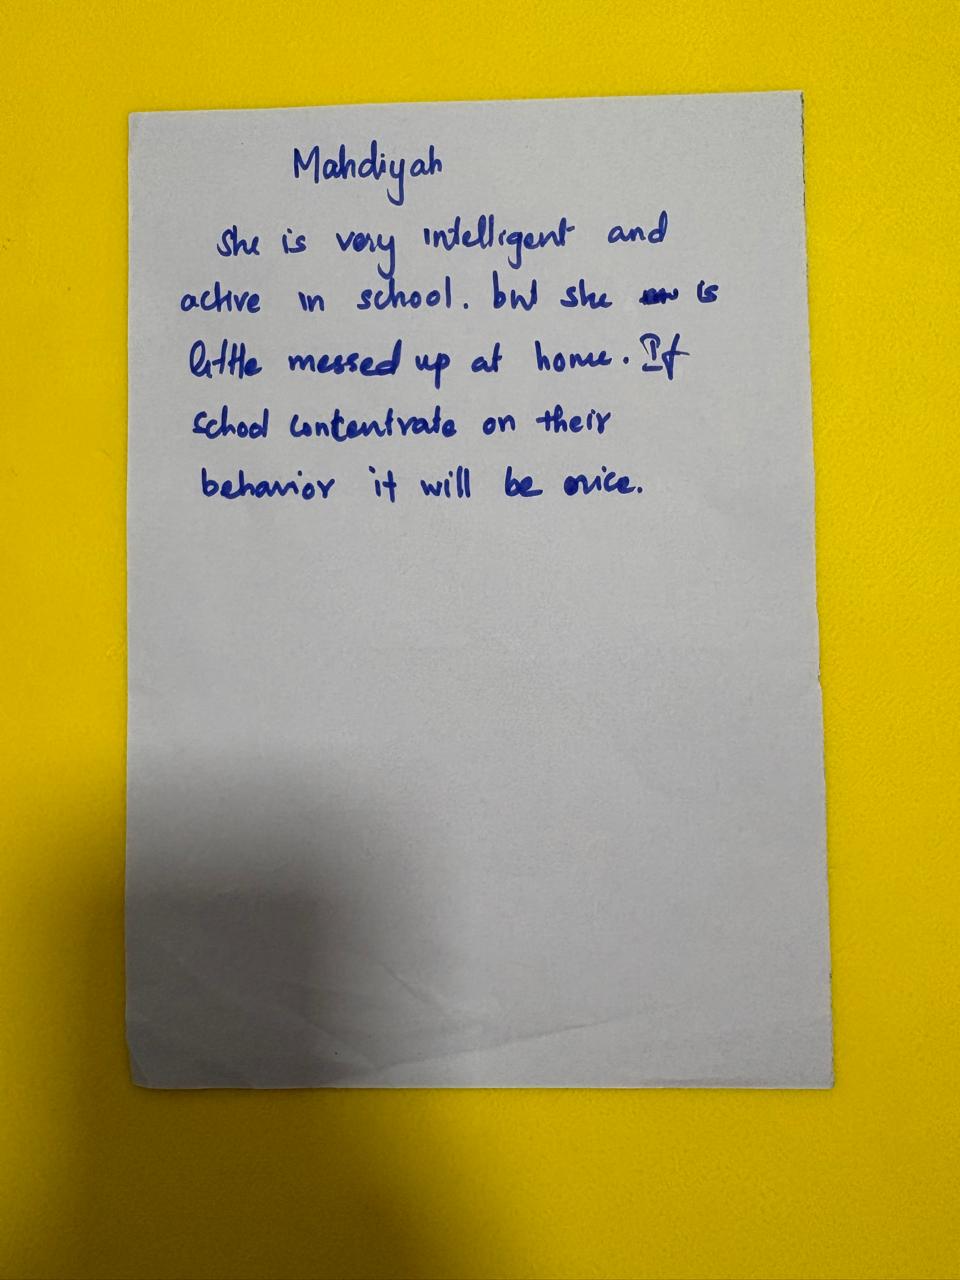 Mahdiyah
She is very intelligent and
active in school. but she is
little messed up at home. If
school contentrate on their
behavior it will be nice.